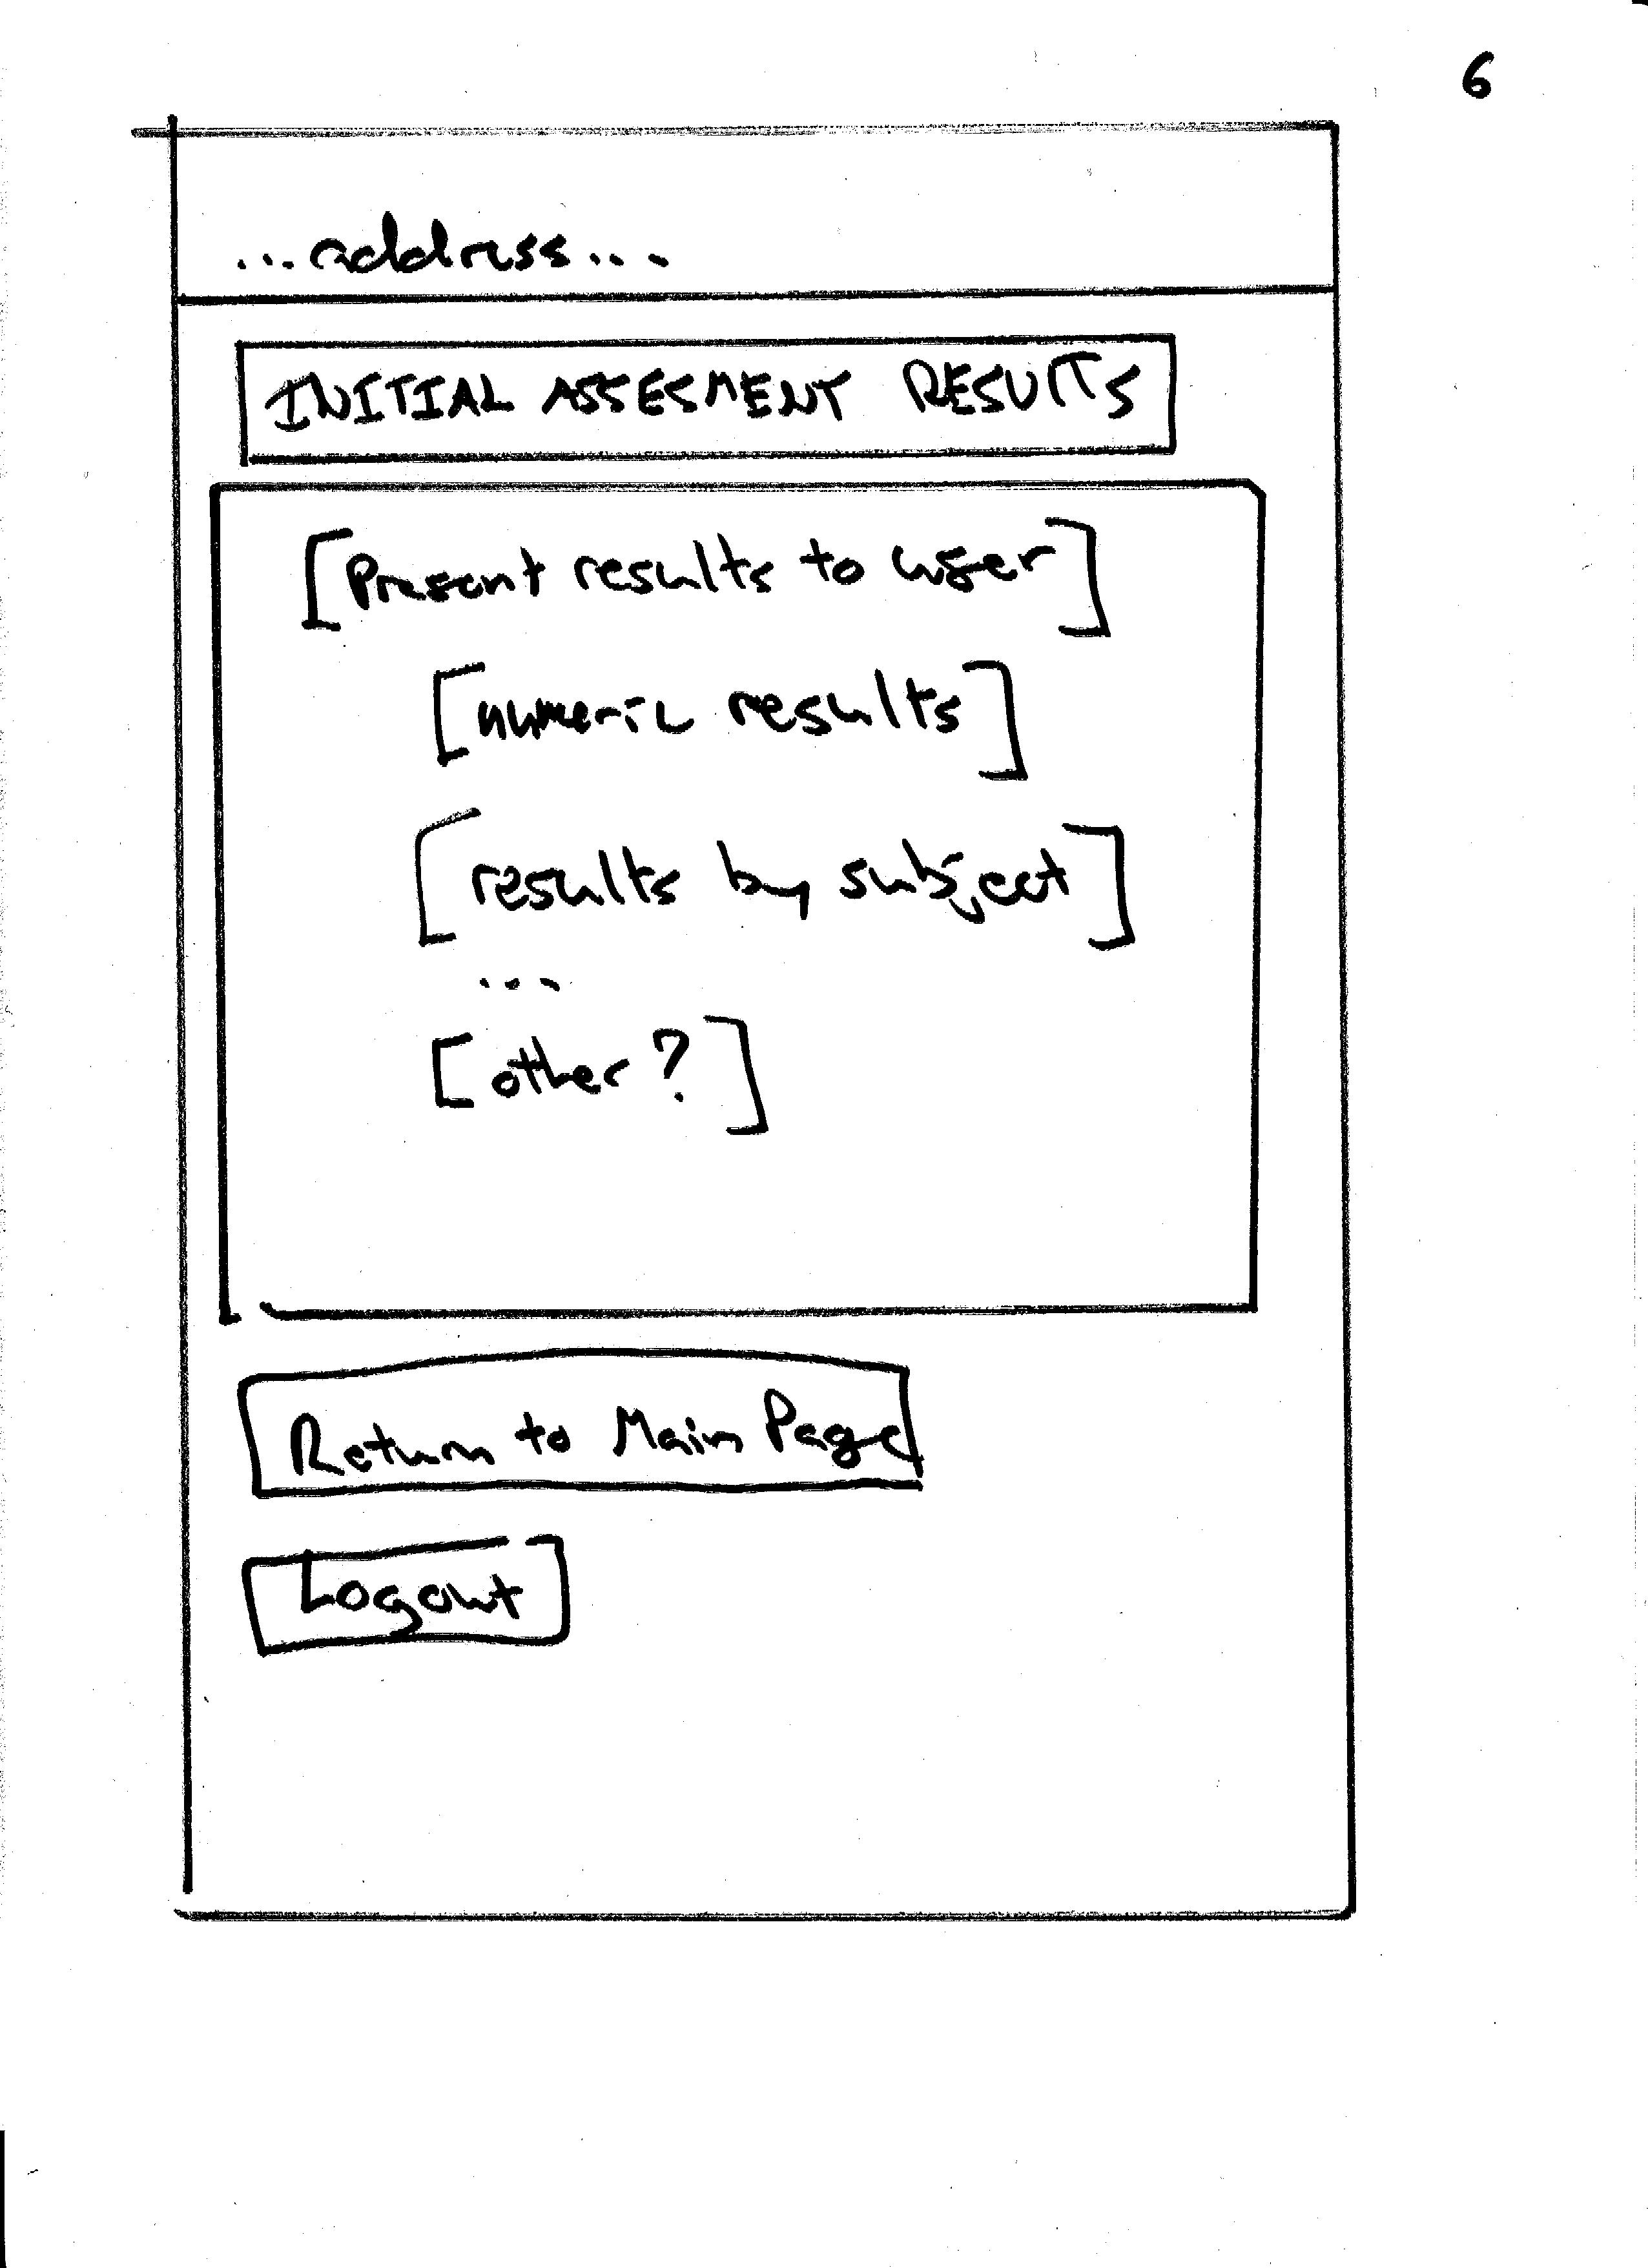 6
...address...
INITIAL ASSESMENT RESULTS
[Present results to user]
[numeric results]
[results by subject]
...
[other?]
Return to Main Page
Logout